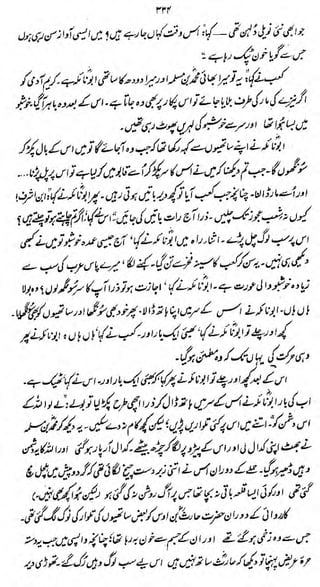 ۳۳۴
جو ابھی نئی نویلی دلہن تھی —— کہا: "اس وقت کہاں جا رہے ہیں؟ میں ایسی آواز سن رہی ہوں
جس سے گویا خون ٹپک رہا ہے۔"
کعب نے کہا: "یہ تو میرا بھائی محمد بن مسلمہ اور میرا دودھ کا ساتھی ابو نائلہ ہے۔ کریم آدمی کو
اگر نیزے کی مار کی طرف بلایا جائے تو اس پکار پر بھی وہ جاتا ہے۔ اس کے بعد وہ باہر آ گیا۔ خوشبو
میں بسا ہوا تھا اور سر سے خوشبو کی لہریں پھوٹ رہی تھیں۔
ابو نائلہ نے اپنے ساتھیوں سے کہہ رکھا تھا کہ جب وہ آ جائے گا تو میں اس کے بال پکڑ کر
سونگھوں گا۔ جب تم دیکھنا کہ میں نے اس کا سر پکڑ کر اسے قابو میں کر لیا ہے تو اس پر پل پڑنا....
اور اسے مار ڈالنا۔ چنانچہ جب کعب آیا تو کچھ دیر باتیں ہوتی رہیں۔ پھر ابو نائلہ نے کہا: "ابن اشرف!
کیوں نہ شعب عجوز تک چلیں۔ ذرا آج رات باتیں کی جائیں۔" اس نے کہا: "اگر تم چاہتے ہو تو چلتے ہیں؟"
اس پر سب لوگ چل پڑے۔ اثناء راہ میں ابو نائلہ نے کہا: "آج جیسی عمدہ خوشبو تو میں نے کبھی
دیکھی ہی نہیں۔" یہ سن کر کعب کا سینہ فخر سے تن گیا۔ کہنے لگا: "میرے پاس عرب کی سب سے
زیادہ خوشبو والی عورت ہے۔" ابو نائلہ نے کہا: "اجازت ہو تو ذرا آپ کا سر سونگھ لوں؟" وہ بولا
ہاں ہاں۔ ابو نائلہ نے اس کے سر میں اپنا ہاتھ ڈالا۔ پھر خود بھی سونگھا اور ساتھیوں کو بھی سونگھایا۔
کچھ اور چلے تو ابو نائلہ نے کہا: "بھئی ایک بار اور۔" کعب نے کہا "ہاں ہاں۔" ابو نائلہ نے پھر
وہی حرکت کی یہاں تک کہ وہ مطمئن ہو گیا۔
اس کے بعد کچھ اور چلے تو ابو نائلہ نے پھر کہا کہ بھئی ایک بار اور۔ اس نے کہا ٹھیک ہے۔
اب کی بار ابو نائلہ نے اس کے سر میں ہاتھ ڈال کر ذرا اچھی طرح پکڑ لیا تو بولے: "لے لو اللہ کے
اس دشمن کو۔" اتنے میں اس پر کئی تلواریں پڑیں؛ لیکن کچھ کام نہ دے سکیں۔ یہ دیکھ کر محمد بن مسلمہ
نے جھٹ اپنی کدال لی اور اس کے پیڑو پر لگا کر چڑھ بیٹھے۔ کدال آر پار ہو گئی اور اللہ کا یہ دشمن
وہیں ڈھیر ہو گیا۔ حملے کے دوران اس نے اتنی زبردست چیخ لگائی تھی کہ گرد و پیش میں ہلچل مچ
گئی تھی اور کوئی ایسا قلعہ باقی نہ بچا تھا جس پر آگ روشن نہ کی گئی ہو۔ (لیکن ہوا کچھ بھی نہیں۔)
کارروائی کے دوران حضرت حارث بن اوس کو بعض ساتھیوں کی تلوار کی نوک لگ گئی تھی۔
جس سے وہ زخمی ہو گئے تھے اور ان کے جسم سے خون بہہ رہا تھا؛ چنانچہ واپسی میں جب یہ دستہ
حرہ عریض پہنچا تو دیکھا کہ حارث ساتھ نہیں ہیں اس لیے سب لوگ وہیں رک گئے۔ تھوڑی دیر